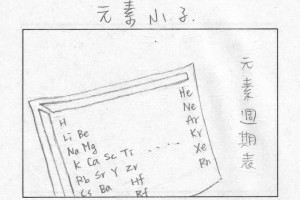 元素小子.
元素週期表
H He
Li Be Ne
Na Mg Ar
K Ca Sc Ti ····· Kr
Rb Sr Y Zr Xe
Cs Ba Hf Rn
Rf